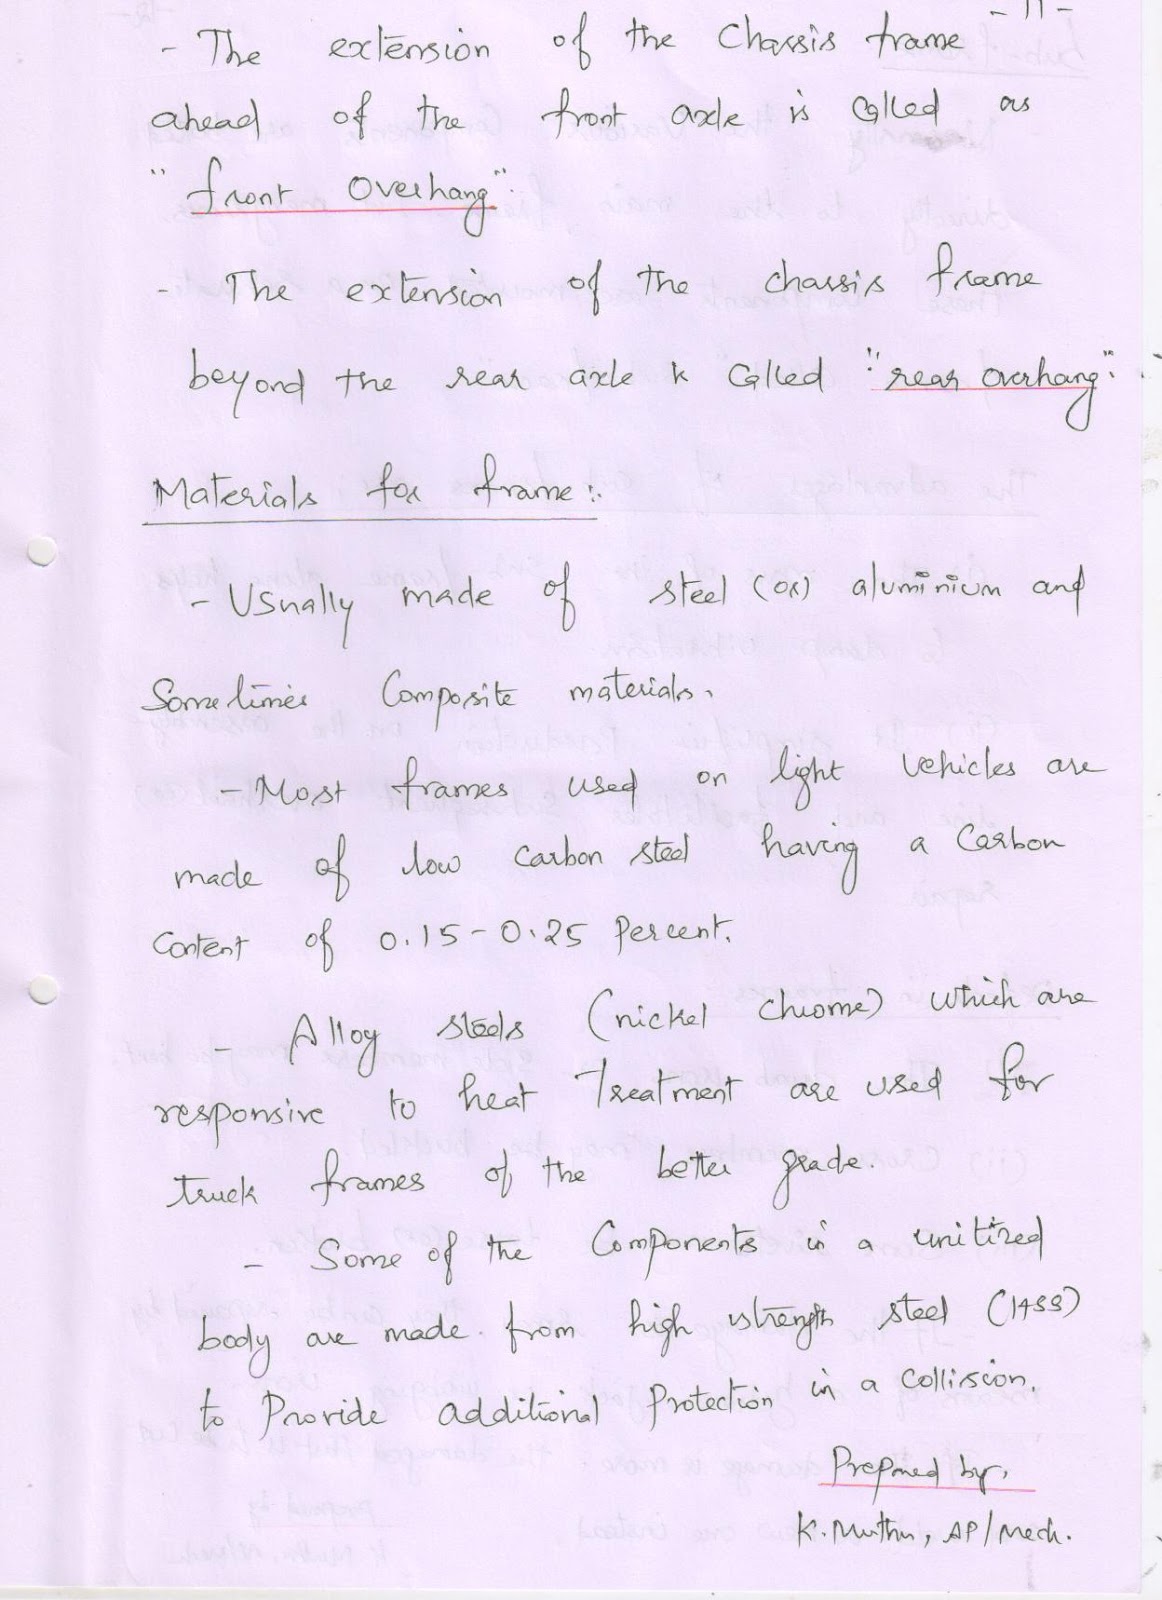 - 11 -
- The extension of the chassis frame
ahead of the front axle is called as
"front overhang".
- The extension of the chassis frame
beyond the rear axle is called "rear overhang".
Materials for frame:-
- Usually made of steel (or) aluminium and
Sometimes Composite materials.
- Most frames used on light vehicles are
made of low carbon steel having a carbon
content of 0.15-0.25 percent.
- Alloy steels (nickel chrome) which are
responsive to heat treatment are used for
truck frames of the better grade.
- Some of the components in a unitized
body are made from high strength steel (HSS)
to provide additional protection in a collision.
Prepared by,
K. Muthu, AP/Mech.